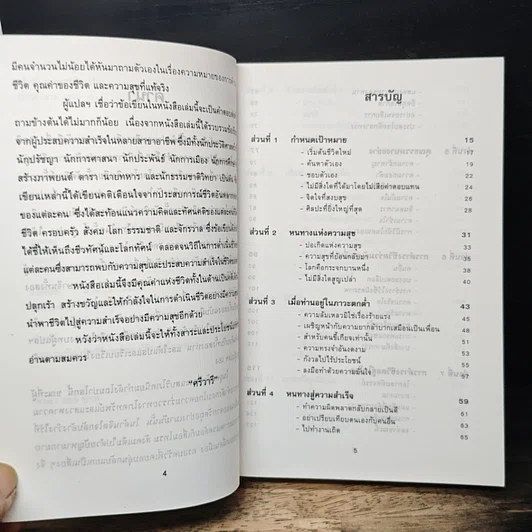 มีคนจำนวนไม่น้อยได้หันมาถามตัวเองในเรื่องความหมายของการดำ
ชีวิต คุณค่าของชีวิต และความสุขที่แท้จริง
ผู้แปลฯ เชื่อว่าข้อเขียนในหนังสือเล่มนี้จะเป็นคำตอบ
ถามข้างต้นได้ไม่มากก็น้อย เนื่องจากหนังสือเล่มนี้ได้รวบรวมข้อเขียน
จากผู้ประสบความสำเร็จในหลายสาขาอาชีพ ซึ่งมีทั้งนักประวัติศาสตร์
นักปรัชญา นักการศาสนา นักประพันธ์ นักการเมือง นักการศึกษา
สร้างภาพยนตร์ ดารา นายทหาร และนักธรรมชาติวิทยา
เขียนเหล่านี้ได้เขียนคติเตือนใจจากประสบการณ์ชีวิตอัน
ของแต่ละคน ซึ่งได้สะท้อนแนวความคิดและทัศนคติของแต่ละคน
ชีวิต ครอบครัว สังคม โลก ธรรมชาติ และจักรวาล ซึ่งข้อเขียน
ได้ชี้ให้เห็นถึงชีวทัศน์และโลกทัศน์ ตลอดจนวิถีในการดำเนินชีวิต
แต่ละคนซึ่งสามารถพบกับความสุขและประสบความสำเร็จในชีวิต
หนังสือเล่มนี้จะเป็นคู่มือคุณค่าแห่งชีวิตทั้งในด้านเป็น
ปลุกเร้า สร้างขวัญและให้กำลังใจในการดำเนินชีวิตอย่างมีความ
นำพาชีวิตไปสู่ความสำเร็จอย่างมีความสุขอีกด้วย
หวังว่าหนังสือเล่มนี้จะให้ทั้งสาระและประโยชน์
อ่านตามสมควร
"ศรีวารี"
4
สารบัญ
ส่วนที่ 1 กำหนดเป้าหมาย 15
- เริ่มต้นชีวิตใหม่ 16
- ค้นหาตัวเอง 19
- ชอบตัวเอง 22
- ไม่มีสิ่งใดที่ได้มาโดยไม่เสียค่าตอบแทน 24
- จิตใจที่สงบสุข 26
- ศิลปะที่ยิ่งใหญ่ที่สุด 28
ส่วนที่ 2 หนทางแห่งความสุข 31
- บ่อเกิดแห่งความสุข 32
- ความสุขที่ย้อนกลับมา 34
- โลกคือกระจกบานหนึ่ง 37
- ไม่มีสิ่งใดสูญเปล่า 40
ส่วนที่ 3 เมื่อท่านอยู่ในภาวะตกต่ำ 43
- ความล้มเหลวมิใช่เรื่องร้ายแรง
- เผชิญหน้ากับความยากลำบากเสมือนเป็นเพื่อน
- สำหรับคนขี้เกียจเท่านั้น
- ความทรงจำอันงดงาม
- กังวลไปไร้ประโยชน์
- ลงมือทำด้วยความมั่นใจ
ส่วนที่ 4 หนทางสู่ความสำเร็จ 59
- ทำความผิดพลาดกลับกลายเป็นดี 60
- อย่าเปรียบเทียบตนเองกับคนอื่น
- ไปทำงานเถิด 65
5